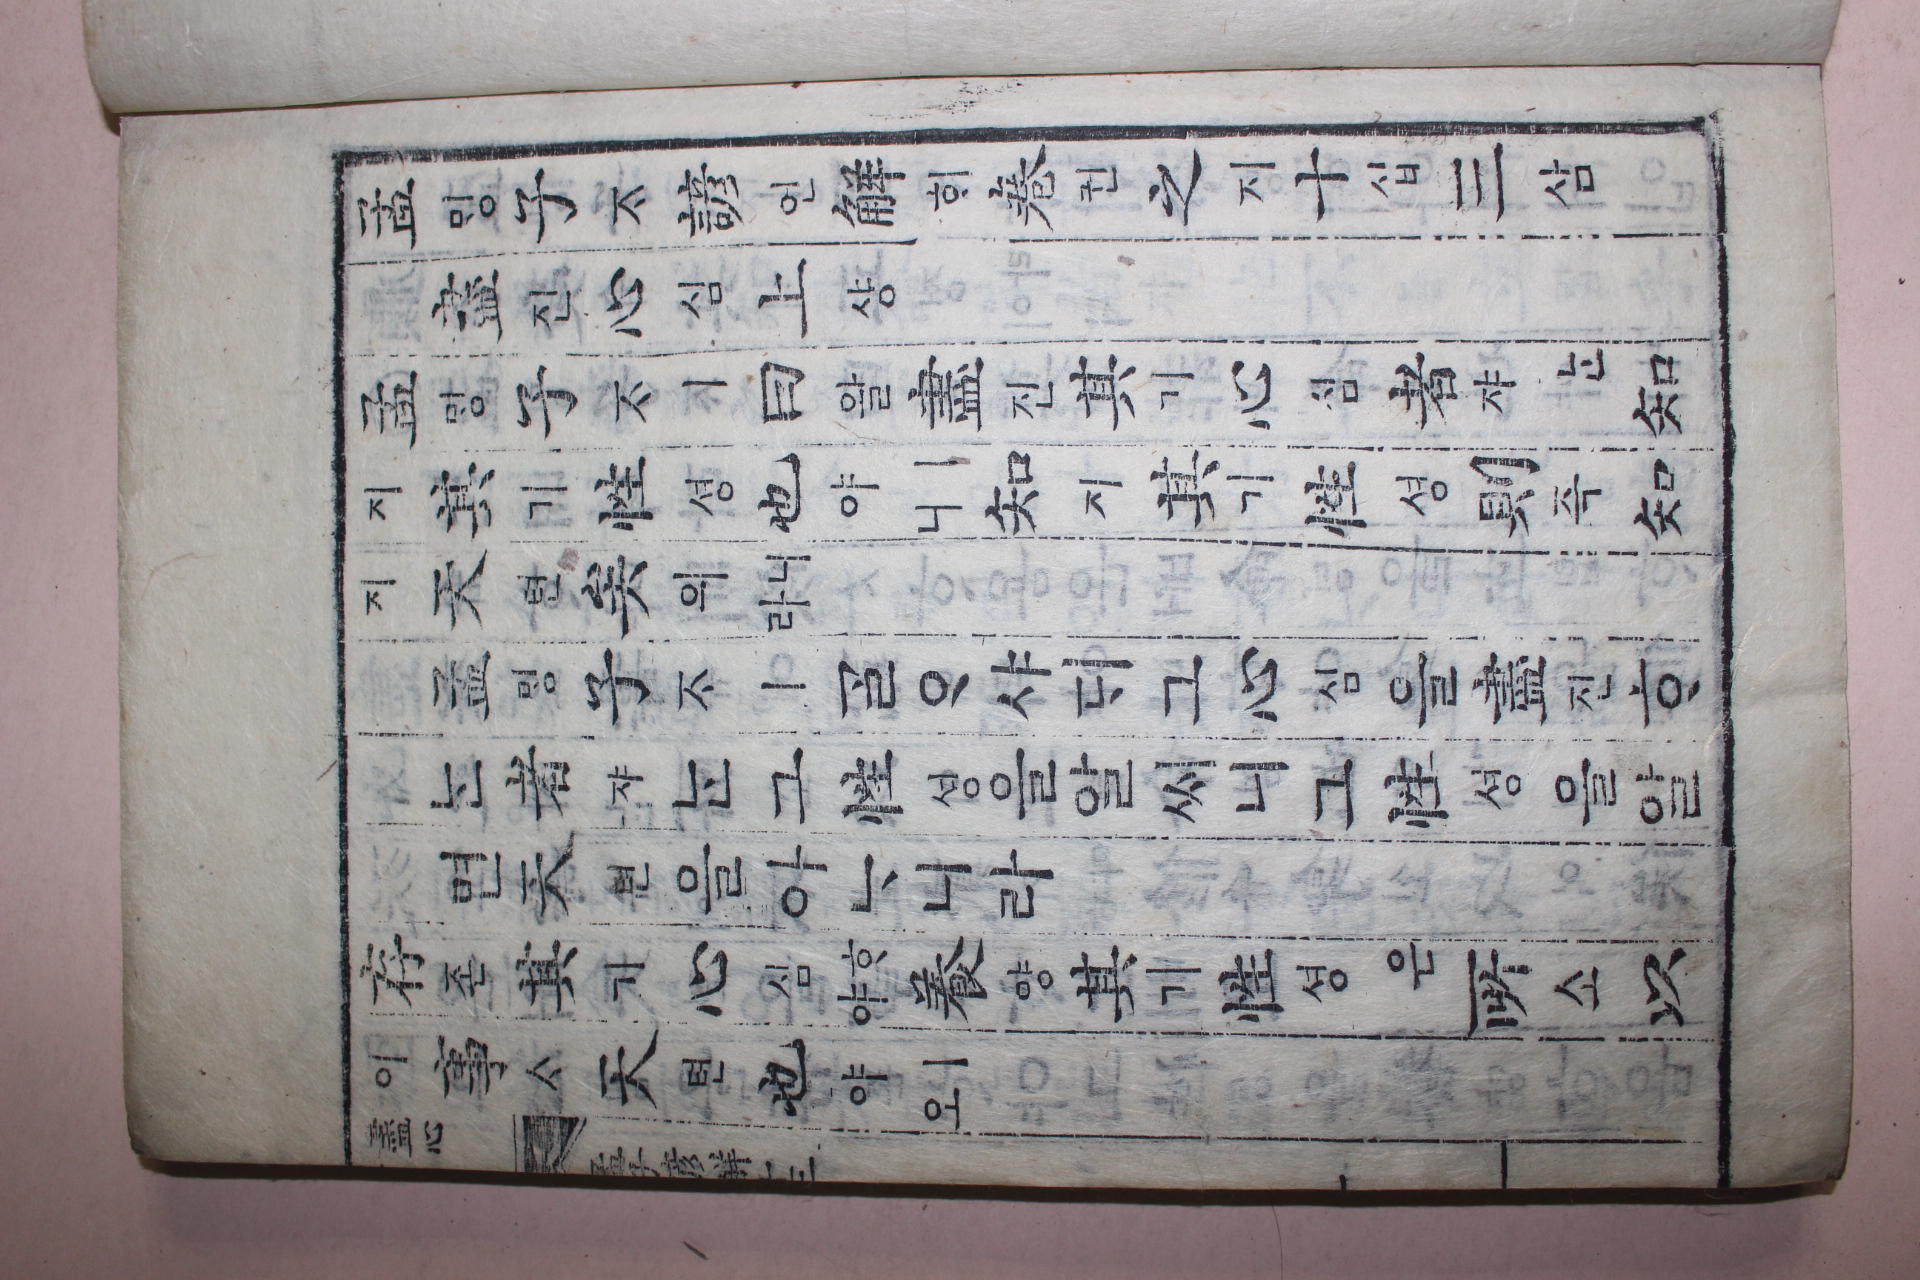 孟ᄆᆡᆼ子ᄌᆞ諺언解ᄒᆡ卷권之지十십三삼
盡진心심上샹
孟ᄆᆡᆼ子ᄌᆞㅣ曰왈盡진其기心심者쟈ᄂᆞᆫ知
지其기性셩也야ㅣ니知지其기性셩則즉知
지天텬矣의니라
孟ᄆᆡᆼ子ᄌᆞㅣᄀᆞᆯᄋᆞ샤ᄃᆡ그心심을盡진ᄒᆞ
ᄂᆞᆫ者쟈ᄂᆞᆫ그性셩을알씨니그性셩을알
면天텬을아ᄂᆞ니라
存존其기心심ᄒᆞ야養양其기性셩은所소以
이事ᄉᆞ天텬也야ㅣ오
盡心